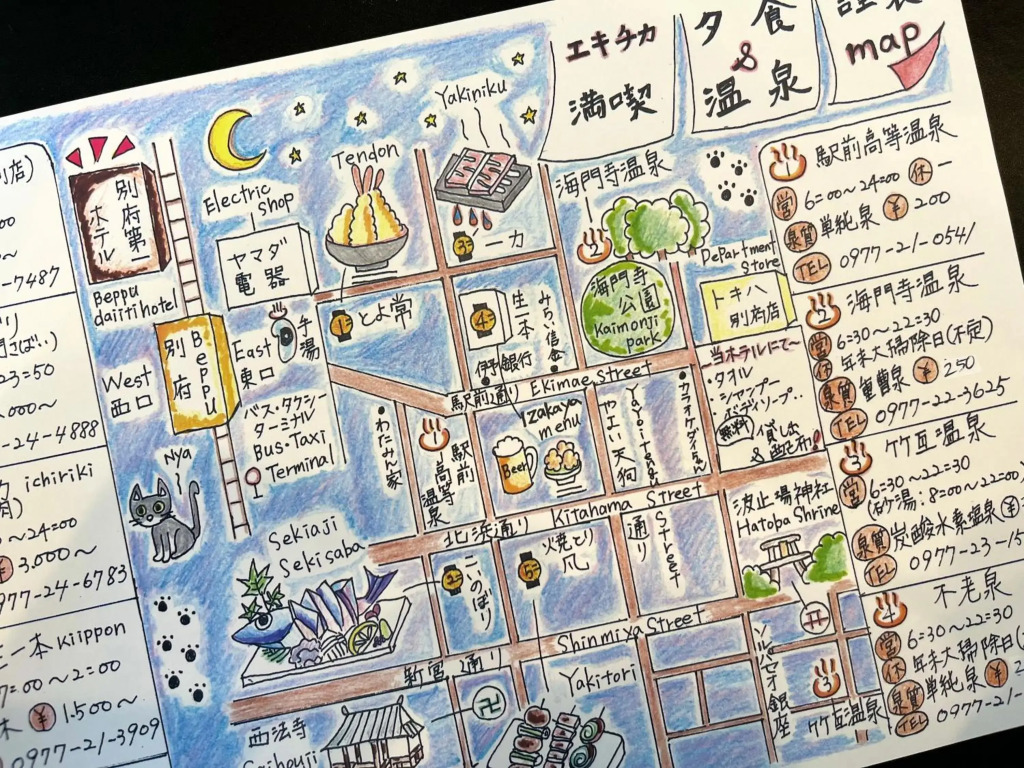 エキチカ
満喫
夕食
&
温泉
map
別店)
00
0~
-7487
23=50
000~
-24-4888
ichiriki
肉)
~24=00
¥ 3.000~
977-24-6783
生一本 Kiippon
7=00~2=00
休 ¥ 1.500~
0977-21-3909
別府第一
ホテル
Beppu
daiitihotel
Electric
shop
ヤマダ
電器
Tendon
Yakiniku
三 一力
一 とよ常
四 生一本
みらい信金
伊予銀行
海門寺温泉
二
海門寺
公園
Kaimonji
park
Department
store
トキハ
別府店
別府
Beppu
West
西口
East
東口
手湯
バス・タクシー
ターミナル
Bus・Taxi
Terminal
Nya
駅前通り Ekimae Street
・わたみん家
駅前
高等
温泉
Izakaya
menu
Beer
やよい天狗
Yayoitengu
当ホテルにて~
・タオル
・シャンプー
無料
貸し出
&
北浜通り Kitahama Street
通り
Street
波止場神社
Hatoba Shrine
Sekiaji
Sekisaba
二 こいのぼり
五 火焼とり
爪
新宮通り Shinmiya Street
西法寺
Saihouji
卍
Yakitori
ソルパセオ銀座
竹瓦温泉
1 駅前高等温泉
営 6=00~24=00 休 ー
泉質 単純泉 ¥ 200
TEL 0977-21-0541
2 海門寺温泉
営 6=30~22=30
休 年末大掃除日(不定)
泉質 重曹泉 ¥ 250
TEL 0977-22-3625
3 竹瓦温泉
営 6=30~22=30
(砂湯:8=00~22=00)
泉質 炭酸水素塩泉 ¥
TEL 0977-23-15
4 不老泉
営 6=30~22=30
休 年末大掃除日(
泉質 単純泉 ¥ 2
TEL 0977-21-